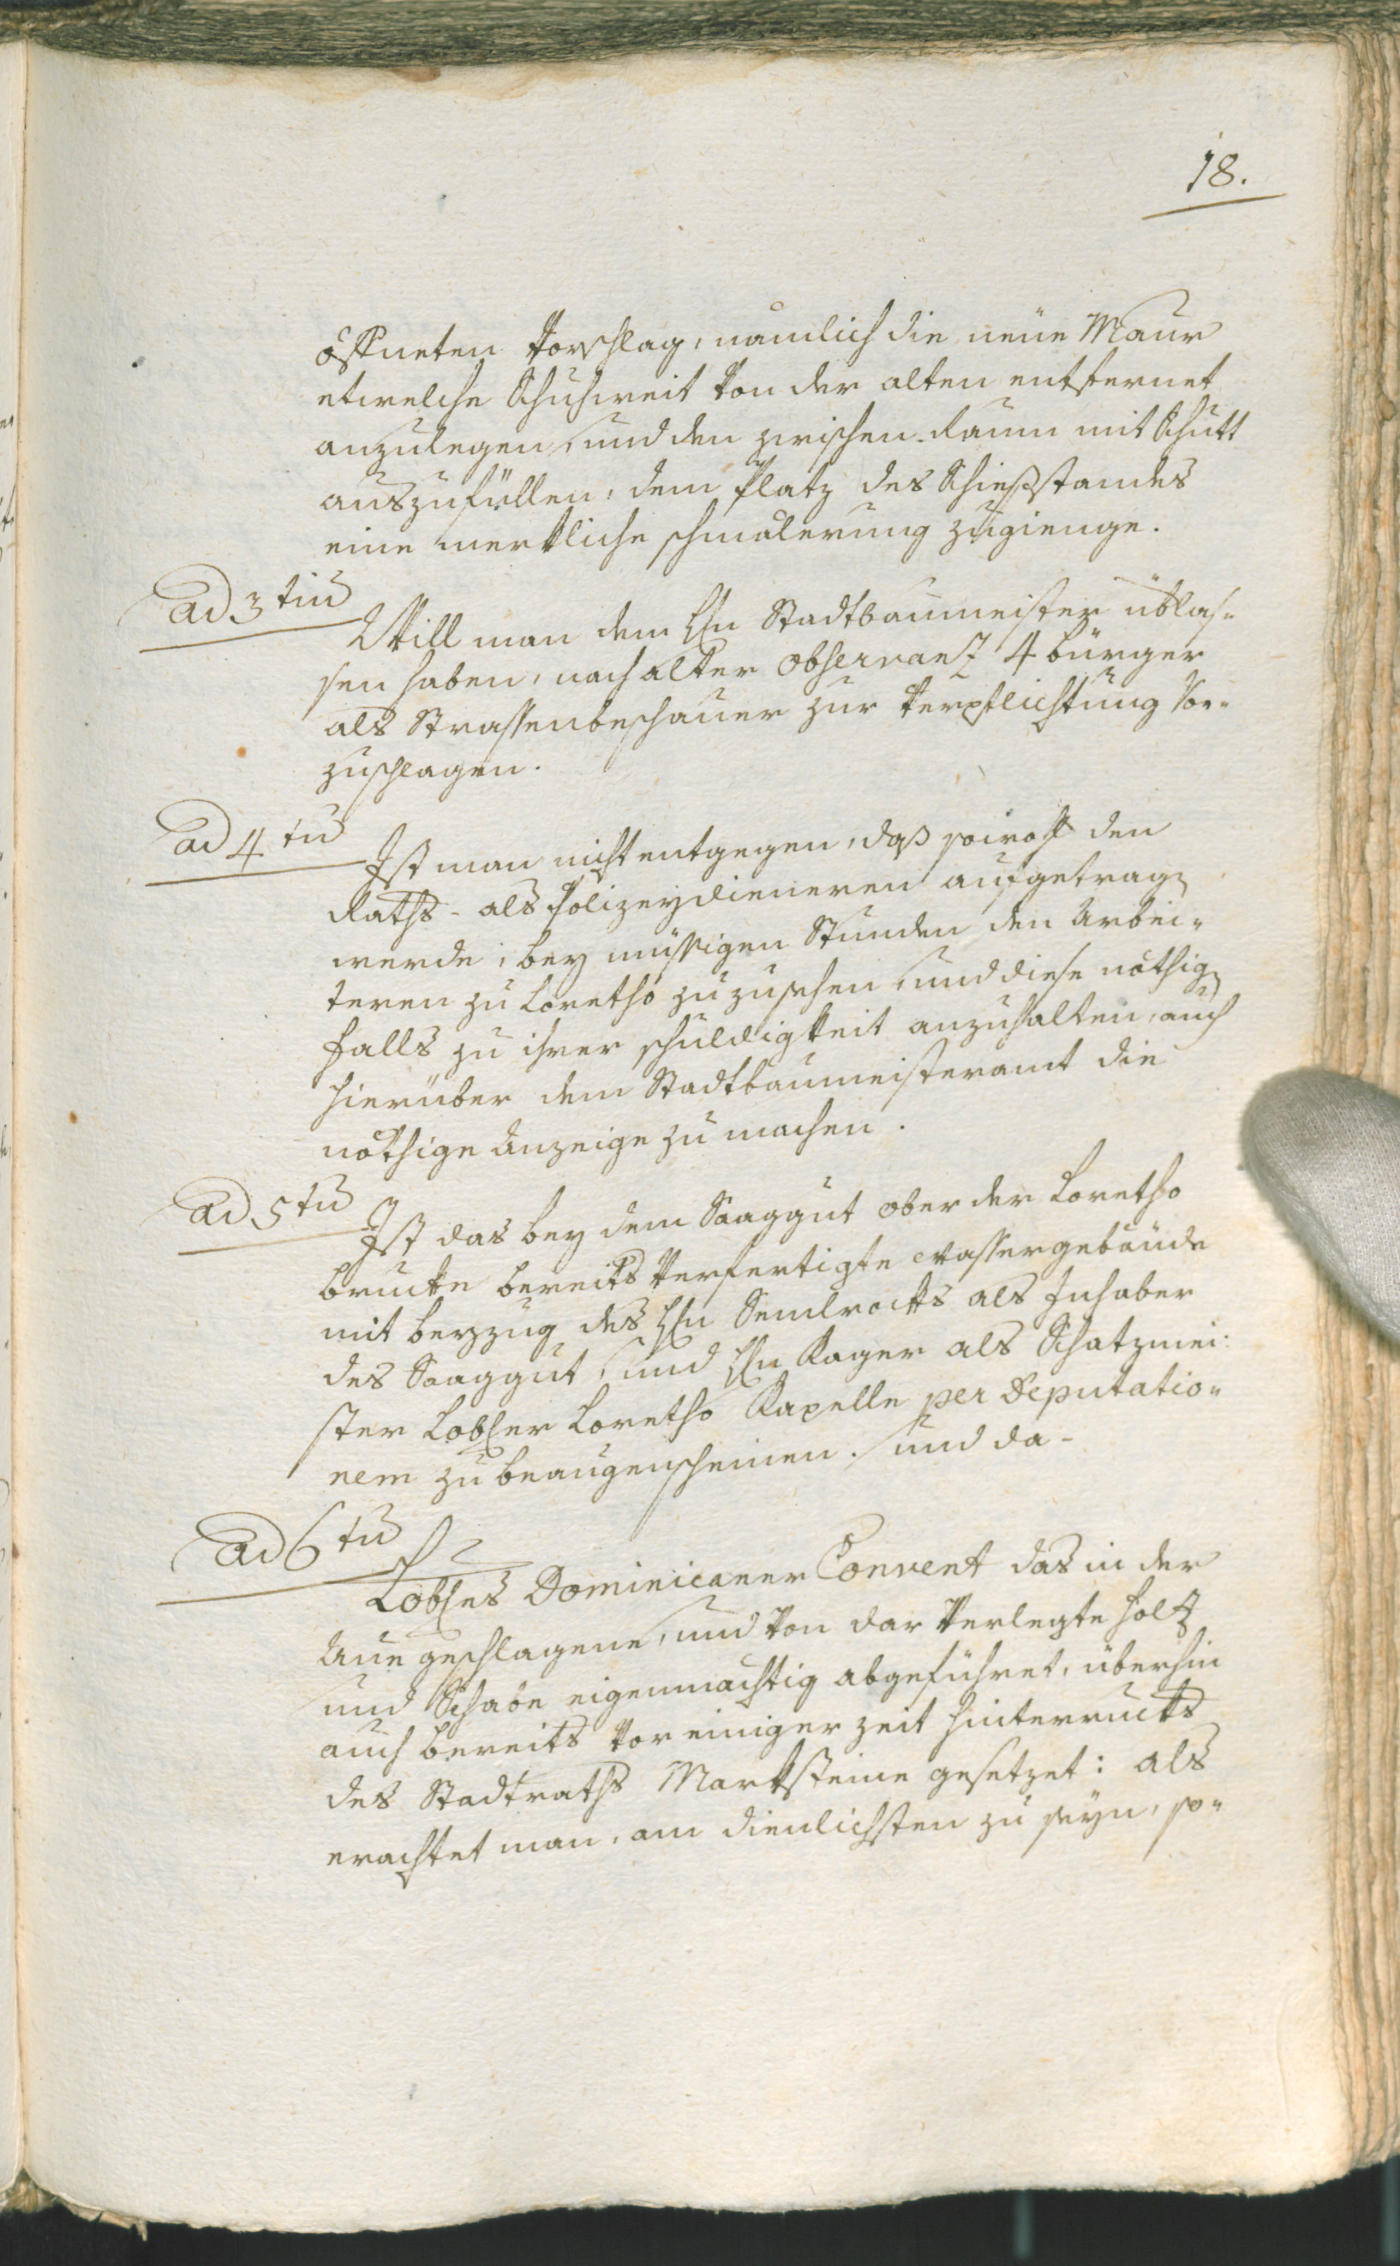 18.
öffneten Vorschlag, nämlich die neüe Maur
etwelche Schuhweit von der alten entfernet
anzulegen, und den zwischen-Raum mit Schutt
auszufüllen, dem Platz des Schießstandes
eine merkliche schmälerung zugienge.
ad 3tiu
Will man dem Hn Stadtbaumeister üblas-
sen haben, nach alter Observanz 4 bürger
als Strassenbeschauer zur Verpflichtung vor-
zuschlagen.
ad 4tu
Ist man nicht entgegen, daß sowohl den
Raths- als Polizeydieneren aufgetrag
werde, bey müssigen Stunden den Arbei-
teren zu Loretho zuzusehen, und diese nöthig
falls zu ihrer schuldigkeit anzuhalten, auch
hierüber dem Stadtbaumeisteramt die
nöthige Anzeige zu machen.
ad 5tu
Ist das bey dem Saaggut ober der Loretho
brucke bereits verfertigte Wassergebäude
mit beyzug des Hn Sendlrocks als Inhaber
des Saaggut, und Hn Kager als Schatzmei-
ster Lobler Loretho Kapelle per Deputatio-
nem zu beaugenscheinen. und da-
ad 6tu
Lobles Dominicaner Convent das in der
Aue geschlagene, und von dar verlegte holz
und Schabe eigenmächtig abgeführet, überhin
auch bereits vor einiger zeit hinterrucks
des Stadtraths Marksteine gesetzet: als
erachtet man, am dienlichsten zu seyn, so-